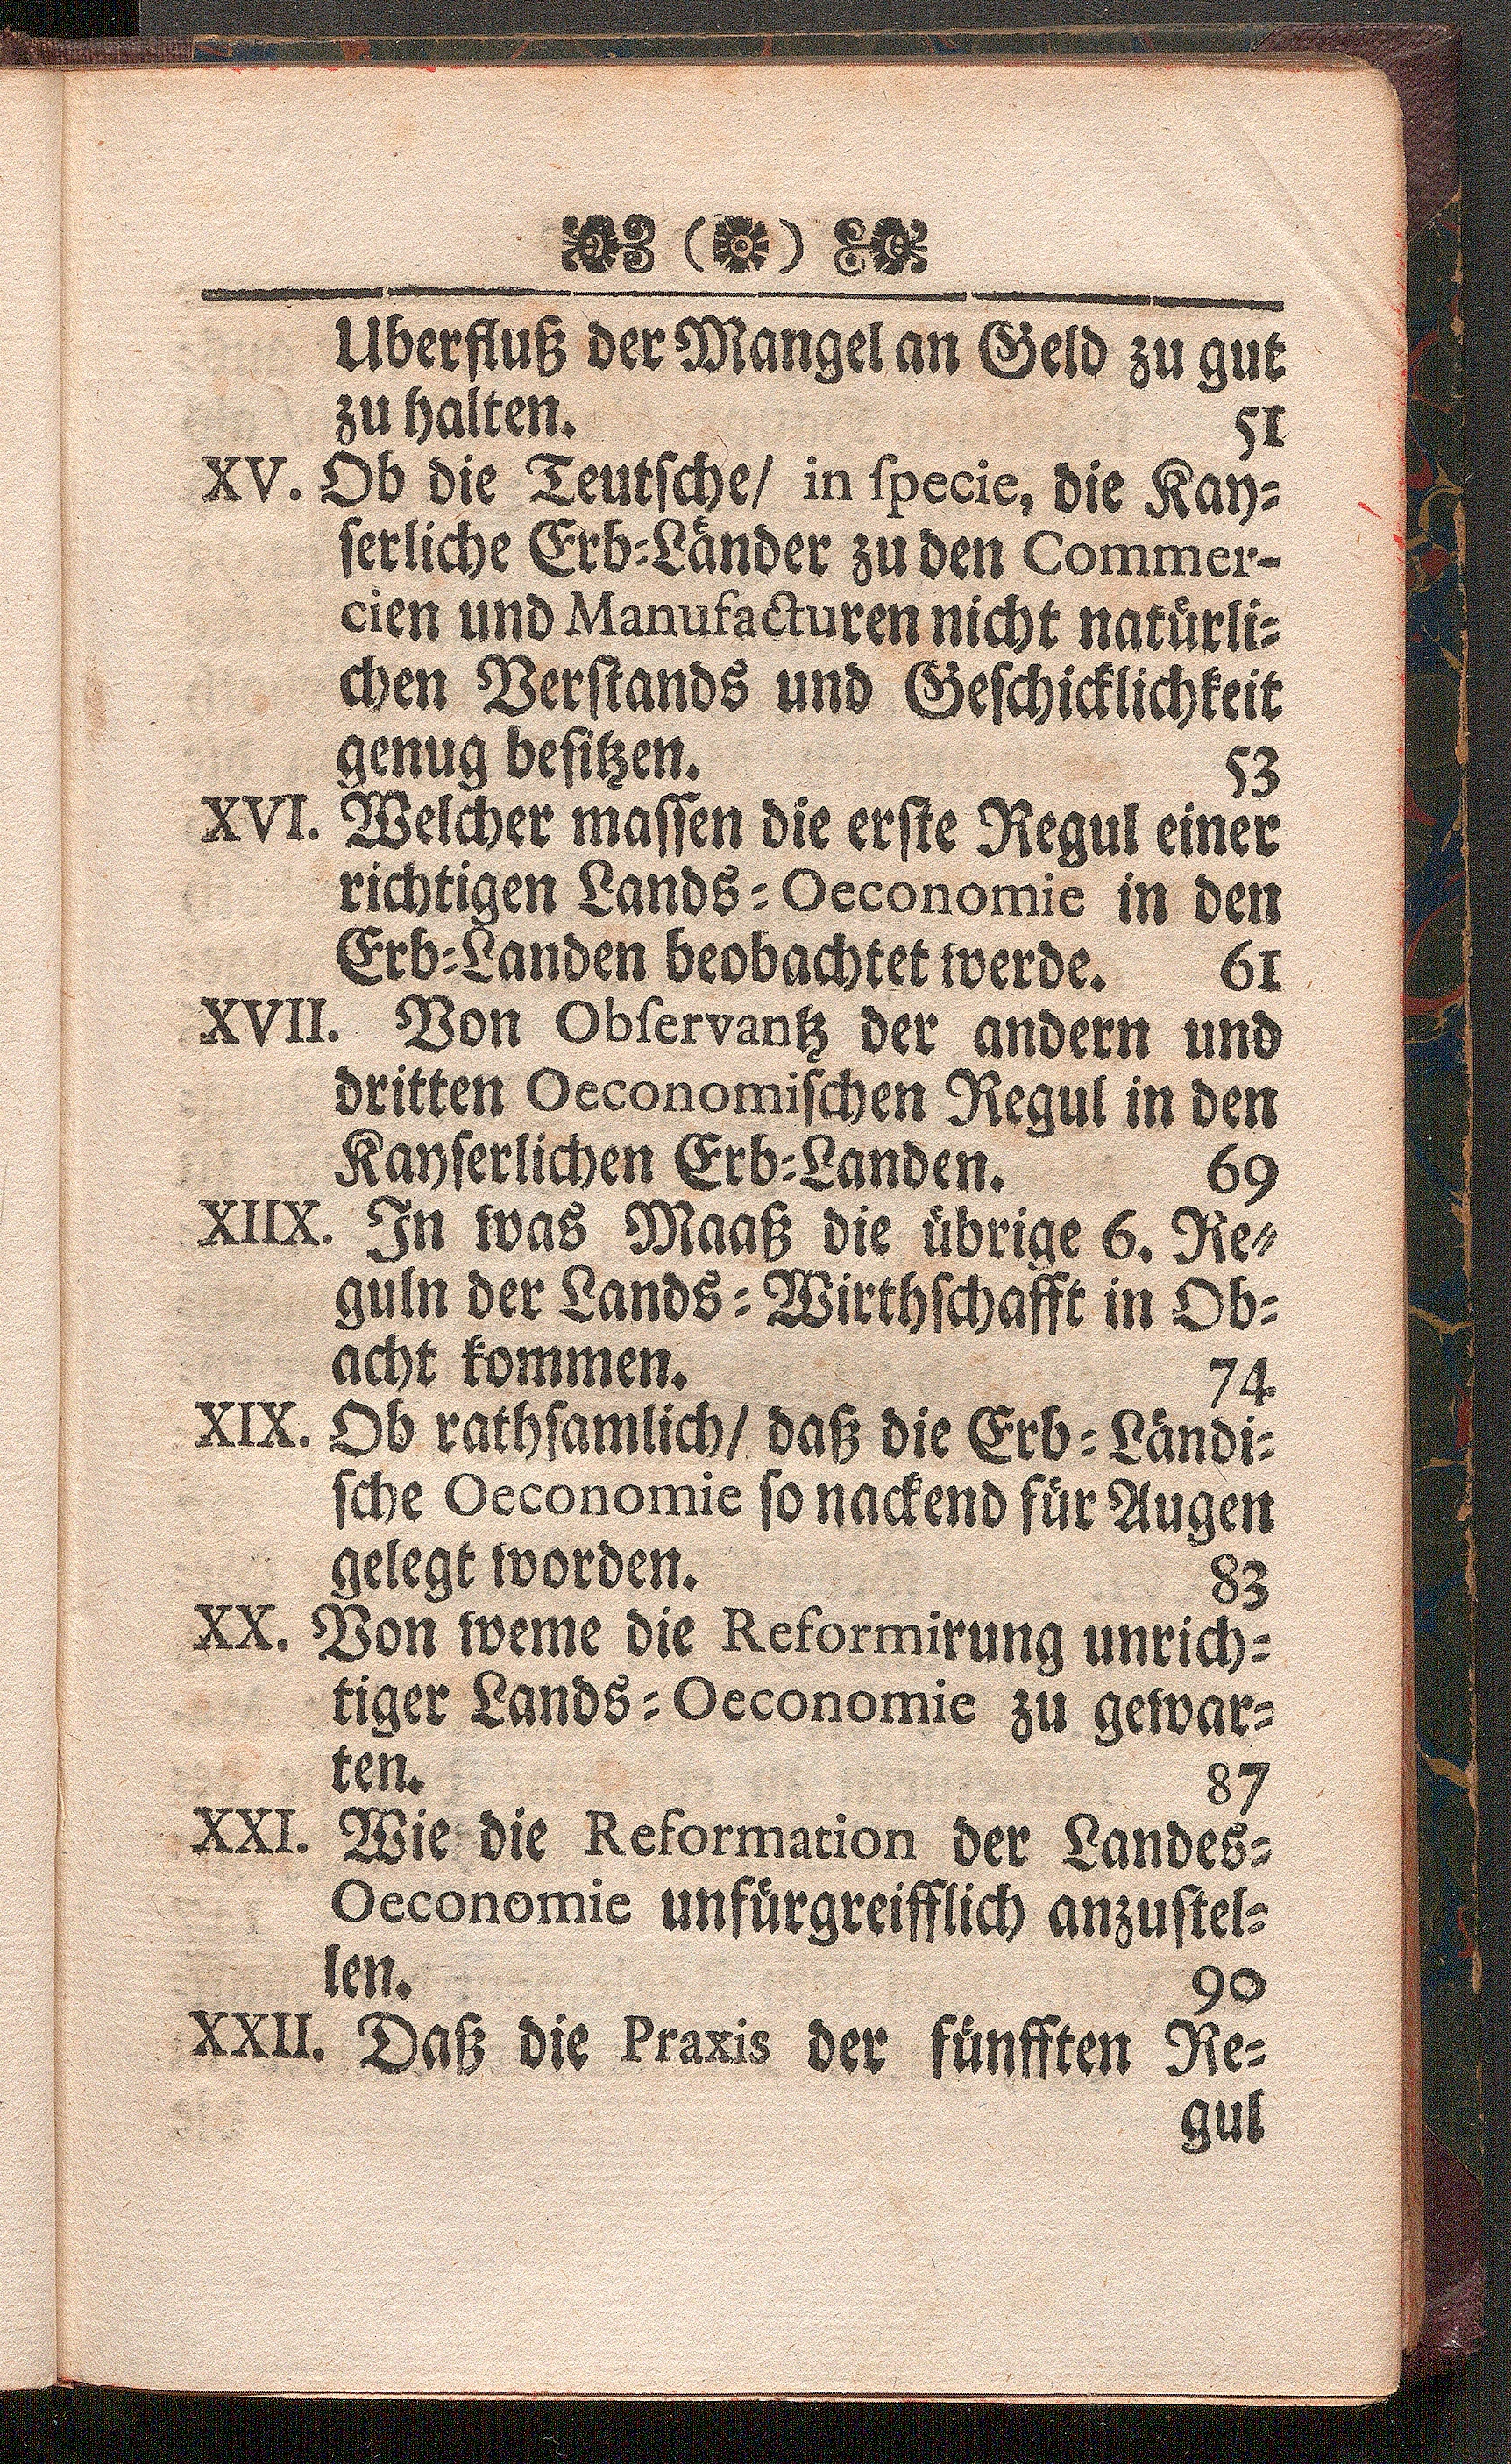 Uberfluß der Mangel an Geld zu gut
zu halten. 51
XV. Ob die Teutsche/ in ſpecie, die Kay-
ſerliche Erb-Länder zu den Commer-
cien und Manufacturen nicht natürli-
chen Verſtands und Geſchicklichkeit
genug beſitzen. 53
XVI. Welcher maſſen die erſte Regul einer
richtigen Lands-Oeconomie in den
Erb-Landen beobachtet werde. 61
XVII. Von Obſervantz der andern und
dritten Oeconomiſchen Regul in den
Kayſerlichen Erb-Landen. 69
XIIX. In was Maaß die übrige 6. Re-
guln der Lands-Wirthſchafft in Ob-
acht kommen. 74
XIX. Ob rathſamlich/ daß die Erb-Ländi-
ſche Oeconomie ſo nackend für Augen
gelegt worden. 83
XX. Von weme die Reformirung unrich-
tiger Lands-Oeconomie zu gewar-
ten. 87
XXI. Wie die Reformation der Landes-
Oeconomie unfürgreifflich anzuſtel-
len. 90
XXII. Daß die Praxis der fünfften Re-
gul